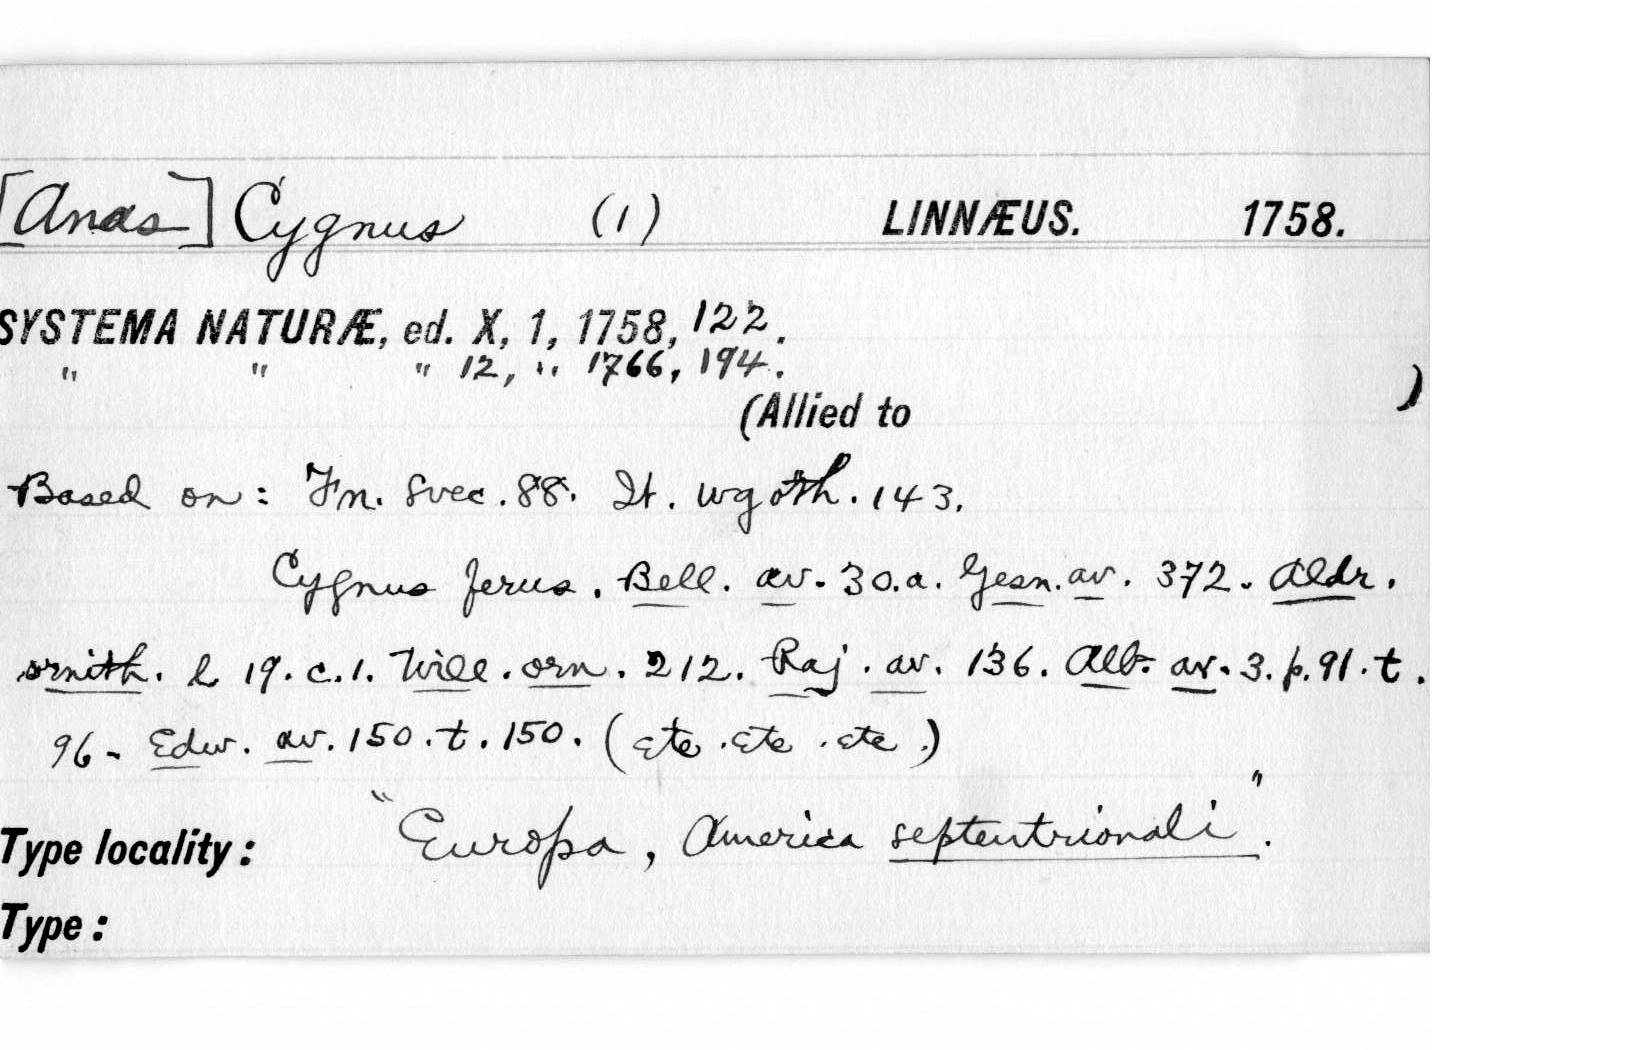 [Anas] Cygnus (1) LINNÆUS. 1758.
SYSTEMA NATURÆ, ed. X, 1, 1758, 122.
" " " 12, " 1766, 194.
(Allied to )
Based on: Fn. Svec. 88. It. wgoth. 143.
Cygnus ferus. Bell. av. 30.a. Gesn. av. 372. Aldr.
ornith. l 19. c. 1. Will. orn. 212. Raj. av. 136. Alb. av. 3. p. 91. t.
96 - Edw. av. 150. t. 150. (etc. etc. etc.)
Type locality: "Europa, America septentrionali".
Type: